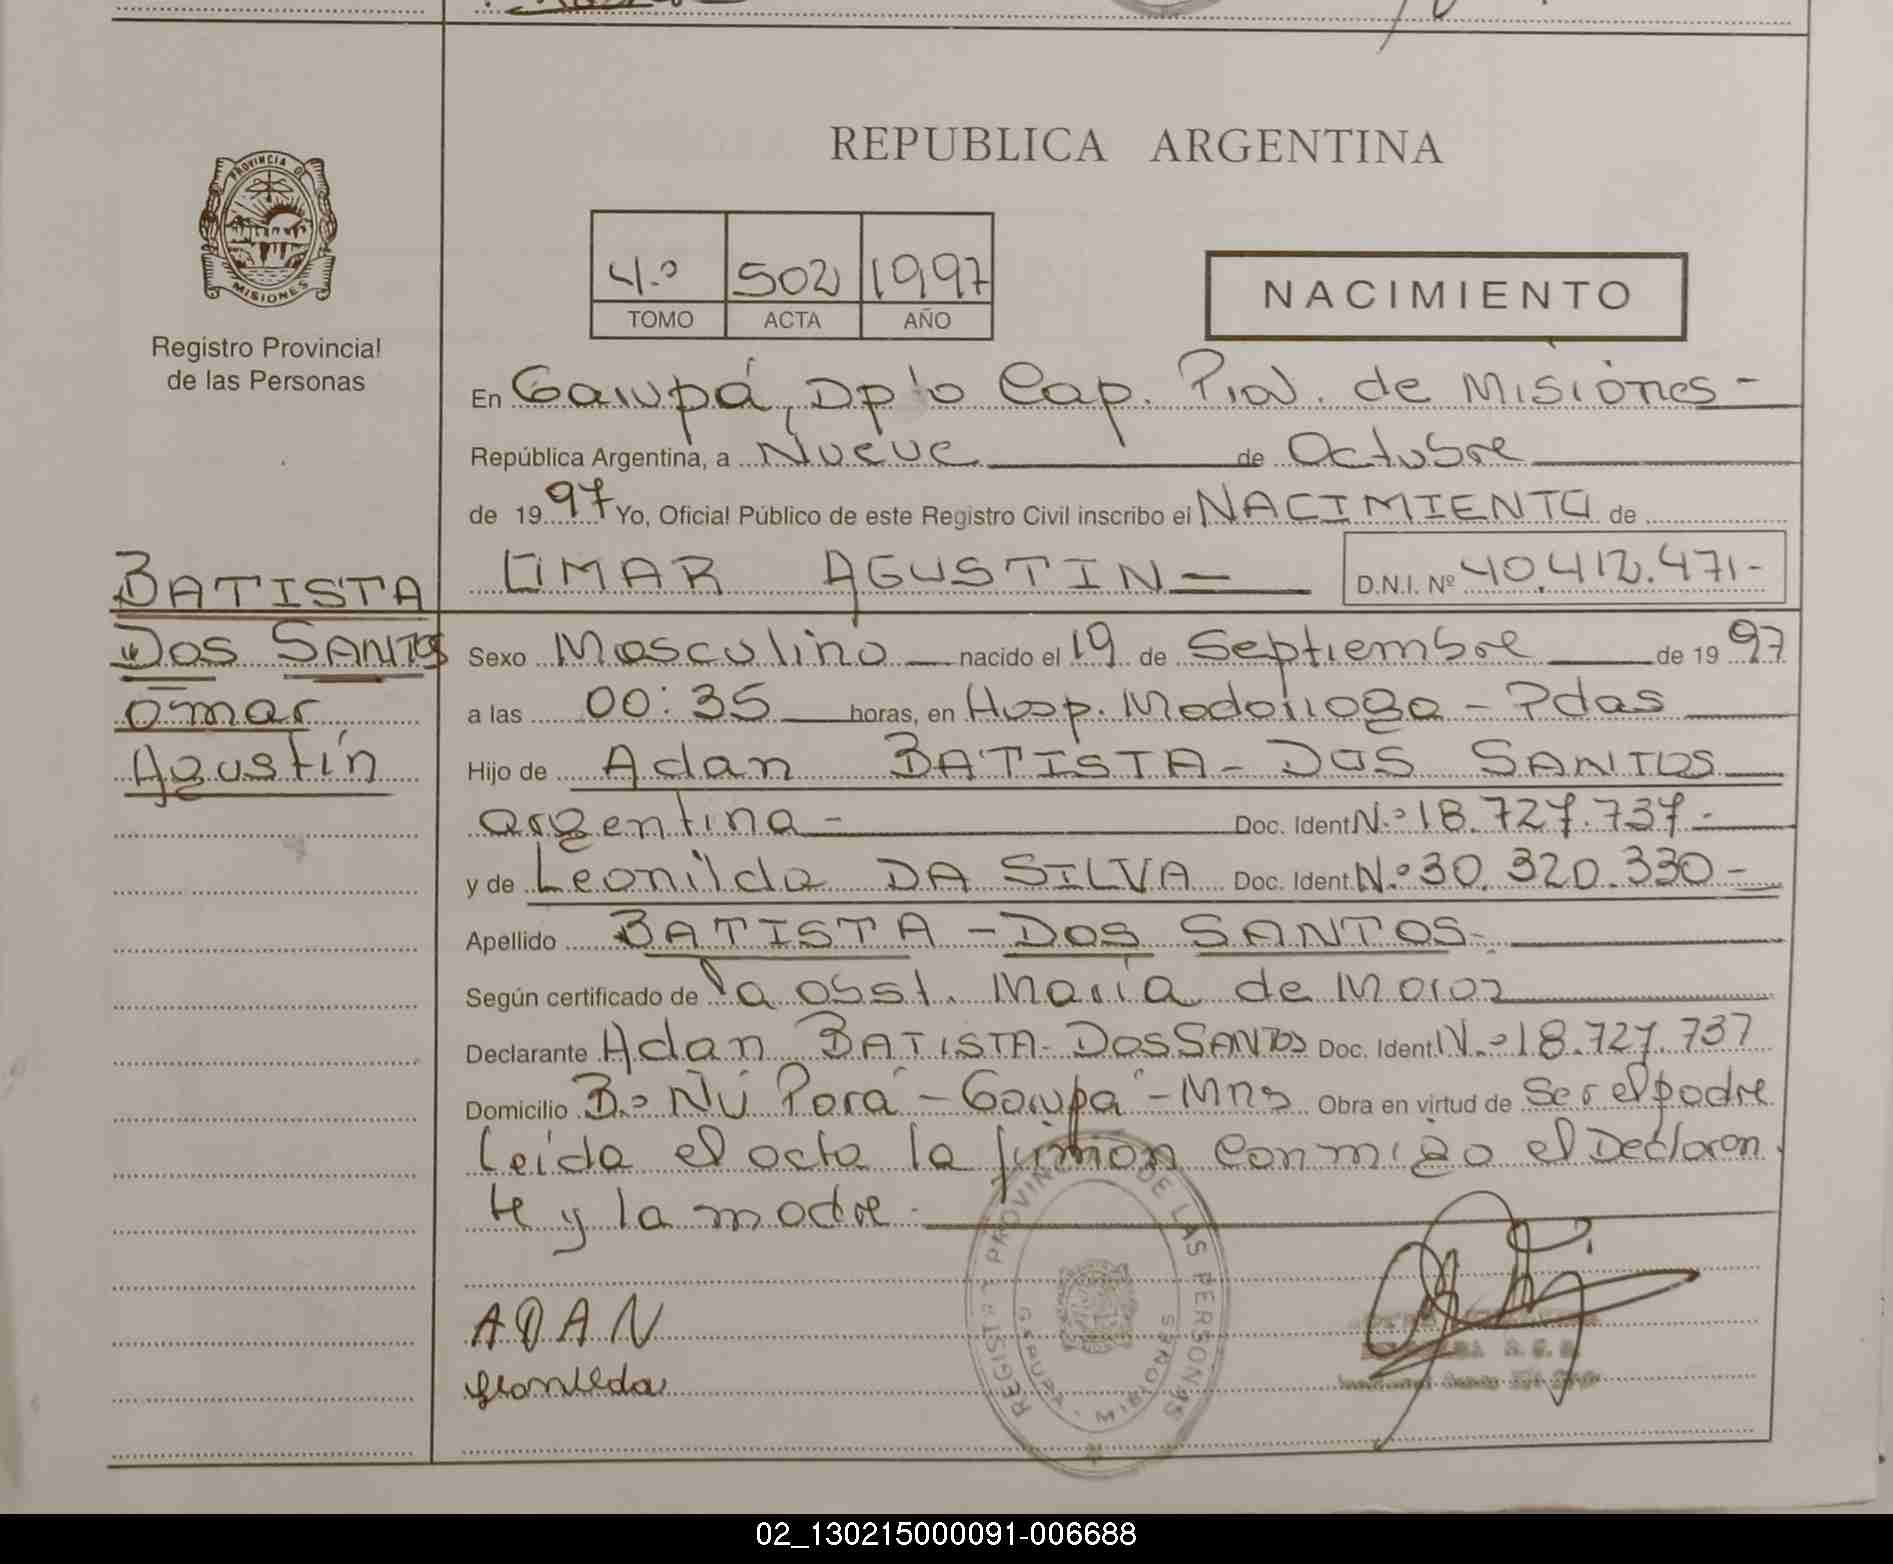 REPUBLICA ARGENTINA
PROVINCIA DE MISIONES
Registro Provincial
de las Personas
4.º 502 1997
TOMO ACTA AÑO
NACIMIENTO
En Garupá, Dpto Cap. Prov. de Misiones -
República Argentina, a Nueve de Octubre
de 1997 Yo, Oficial Público de este Registro Civil inscribo el NACIMIENTO de
OMAR AGUSTIN D.N.I. Nº 40.412.471-
BATISTA
Dos SANTOS
Omar
Agustín
Sexo Masculino nacido el 19 de Septiembre de 1997
a las 00:35 horas, en Hosp. Madariaga - Pdas
Hijo de Adan BATISTA - DOS SANTOS
argentina - Doc. Ident. N.º 18.727.737.-
y de Leonilda DA SILVA Doc. Ident. N.º 30.320.330-
Apellido BATISTA - DOS SANTOS-
Según certificado de la obst. María de
Declarante Adan BATISTA - DOS SANTOS Doc. Ident. N.º 18.727.737
Domicilio B.º Ñú Porá - Garupá - Mnes Obra en virtud de Ser el padre
Leída el acta la firman conmigo el Declaran
te y la madre.
ADAN
Leonilda
REGISTRO PROVINCIAL DE LAS PERSONAS
GARUPA - MISIONES
02_130215000091-006688